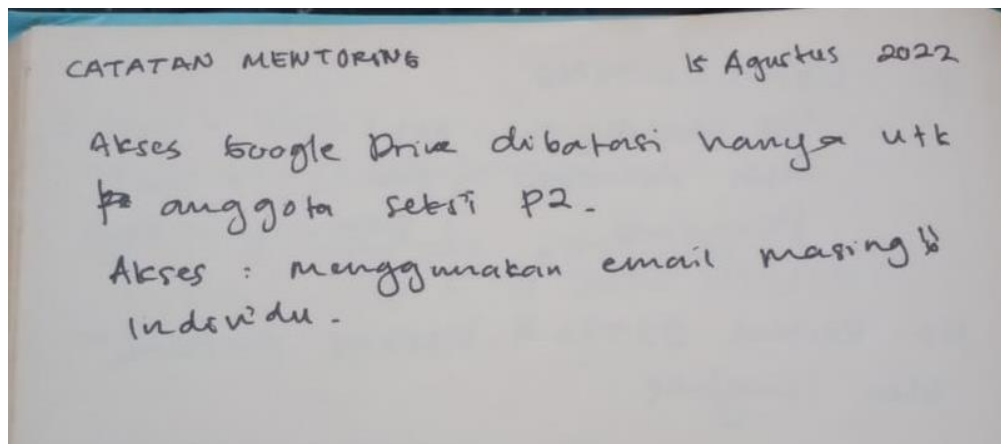 CATATAN MENTORING 15 Agustus 2022
Akses Google Drive dibatasi hanya utk
anggota seksi P2.
Akses : menggunakan email masing"
individu.